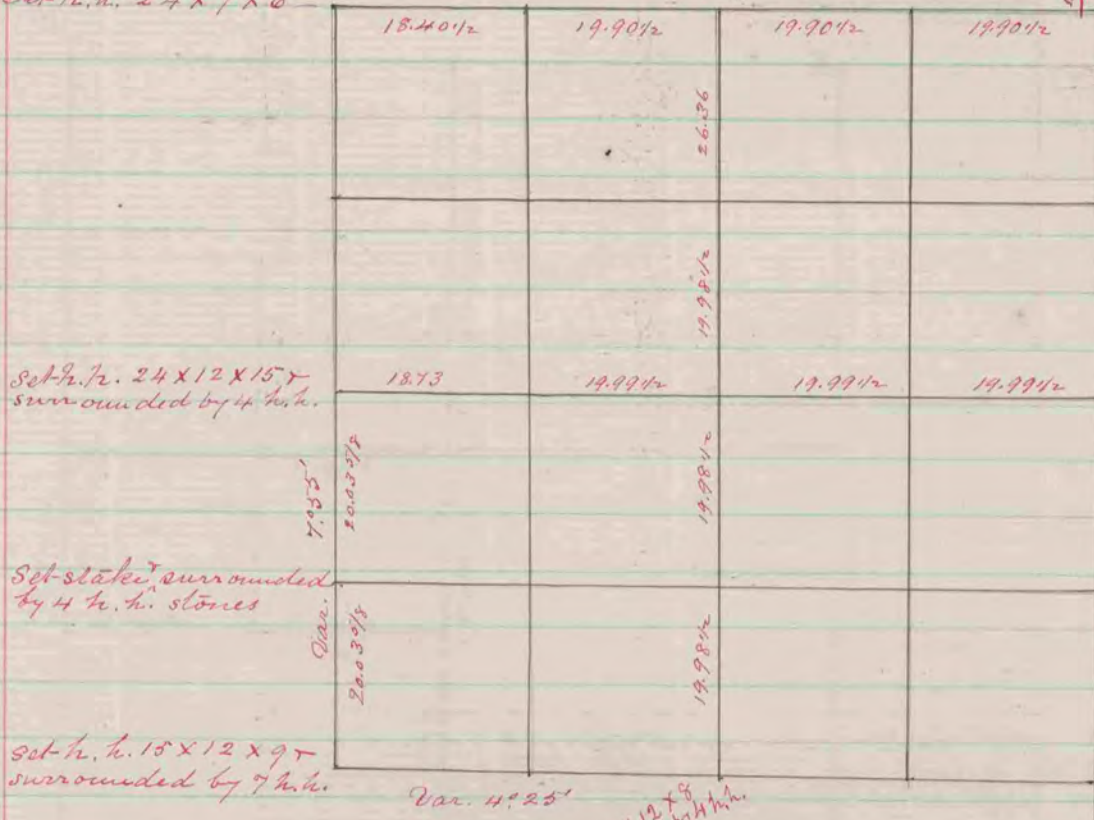 24 x 7 x 6
18.40 1/2 19.90 1/2 19.90 1/2 19.90 1/2
26.36
19.98 1/2
Set h.h. 24 x 12 x 15 &
surrounded by 4 h.h.
18.73 19.99 1/2 19.99 1/2 19.99 1/2
Var. 7°55'
20.03 5/8
19.98 1/2
Set stake & surrounded
by 4 h.h. stones
20.03 5/8
19.98 1/2
set h.h. 15 x 12 x 9 &
surrounded by 7 h.h.
Var. 4°25'
12 x 8
by 4 h.h.